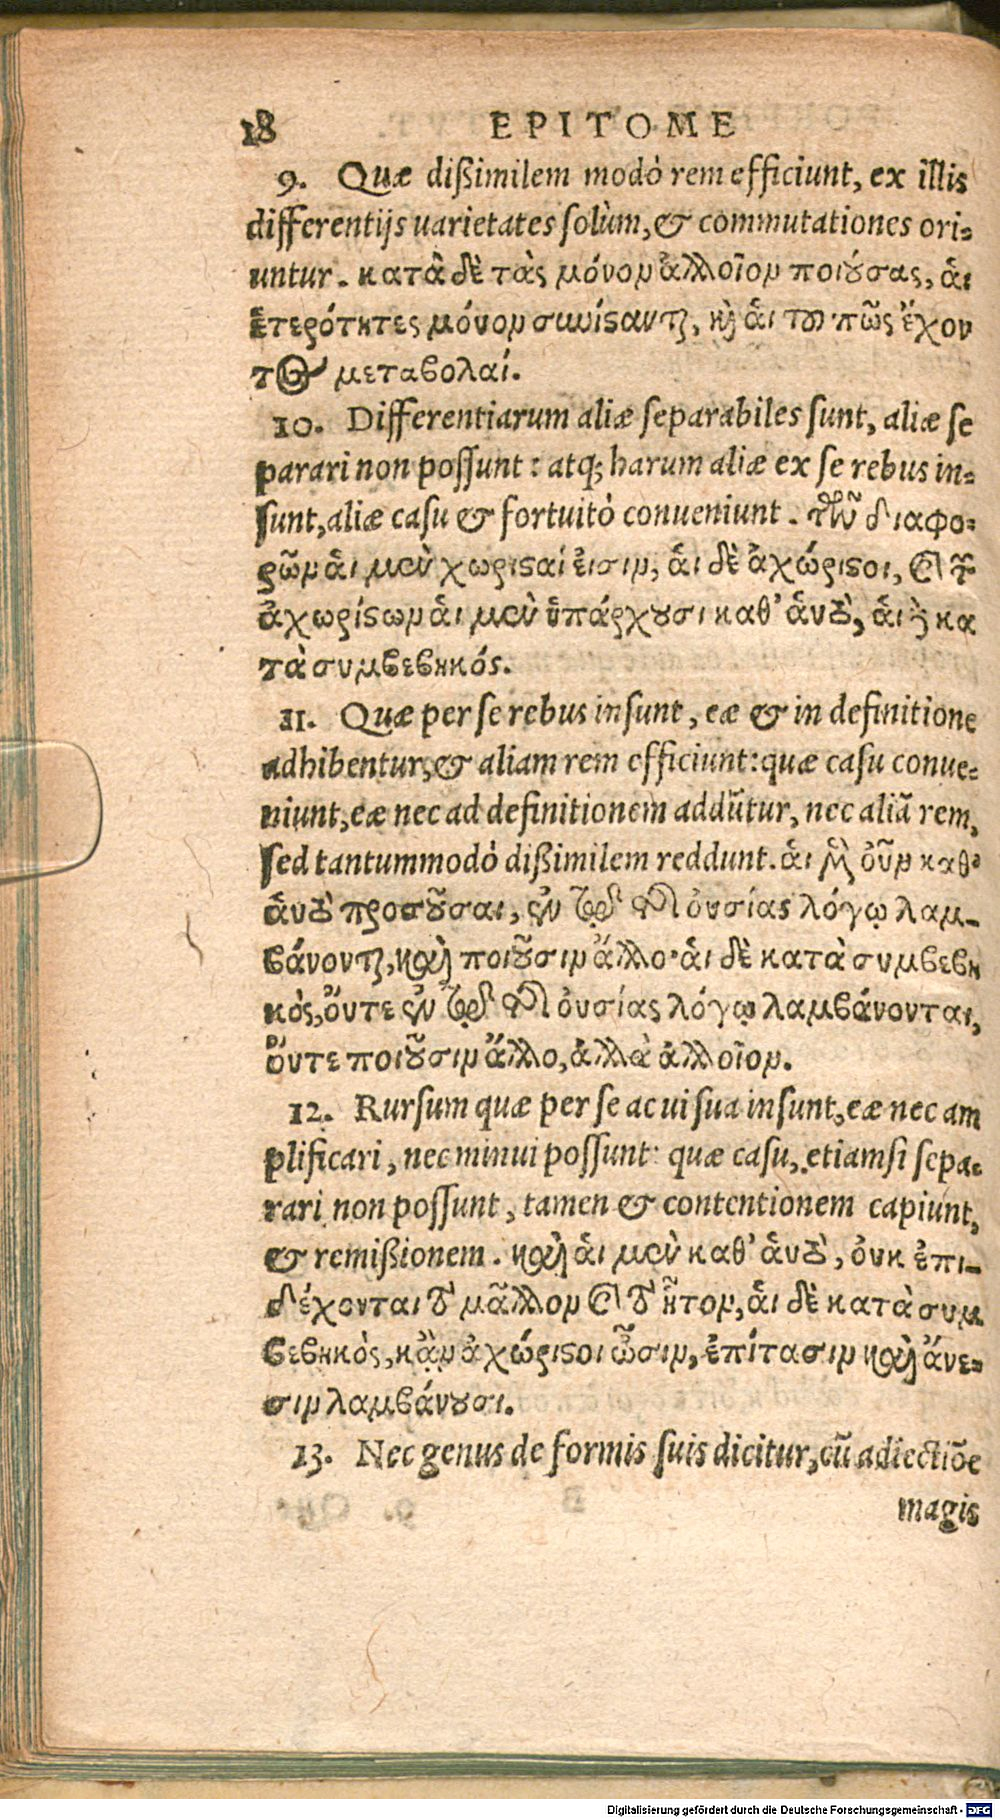 18 EPITOME
9. Quæ dißimilem modò rem efficiunt, ex illis
differentijs uarietates solùm, & commutationes ori-
untur. κατὰ δὲ τὰς μόνον ἀλλοῖον ποιούσας, ἁι
ἑτερότητες μόνον συνίσανται, καὶ ἁι τοῦ πῶς ἔχον
τος μεταβολαί.
10. Differentiarum aliæ separabiles sunt, aliæ se
parari non possunt: atq; harum aliæ ex se rebus in-
sunt, aliæ casu & fortuitò conueniunt. τῶν διαφο-
ρῶν ἁι μὲν χωρισαί ἐισιν, ἁι δὲ ἀχώρισοι, καὶ τῶν
ἀχωρίσων ἁι μὲν ὑπάρχουσι καθ' ἁυτὸ, ἁι δὲ κα
τὰ συμβεβηκός.
11. Quæ per se rebus insunt, eæ & in definitione
adhibentur, & aliam rem efficiunt: quæ casu conue-
niunt, eæ nec ad definitionem addūtur, nec aliā rem,
sed tantummodò dißimilem reddunt. ἁι μὲν οὖν καθ'
ἁυτὸ προσοῦσαι, ἐν τῷ τῆς ὀυσίας λόγῳ λαμ-
βάνονται, καὶ ποιοῦσιν ἄλλο· ἁι δὲ κατὰ συμβεβη
κὸς, ὄυτε ἐν τῷ τῆς ὀυσίας λόγῳ λαμβάνονται,
ὄυτε ποιοῦσιν ἄλλο, ἀλλὰ ἀλλοῖον.
12. Rursum quæ per se ac ui sua insunt, eæ nec am
plificari, nec minui possunt: quæ casu, etiamsi sepa-
rari non possunt, tamen & contentionem capiunt,
& remißionem. καὶ ἁι μὲν καθ' ἁυτὸ, ὀυκ ἐπι-
δέχονται τὸ μᾶλλον καὶ τὸ ἧτον, ἁι δὲ κατὰ συμ
βεβηκὸς, κἂν ἀχώρισοι ὦσιν, ἐπίτασιν καὶ ἄνε-
σιν λαμβάνουσι.
13. Nec genus de formis suis dicitur, cū adiectiōe
magis
Digitalisierung gefördert durch die Deutsche Forschungsgemeinschaft - DFG